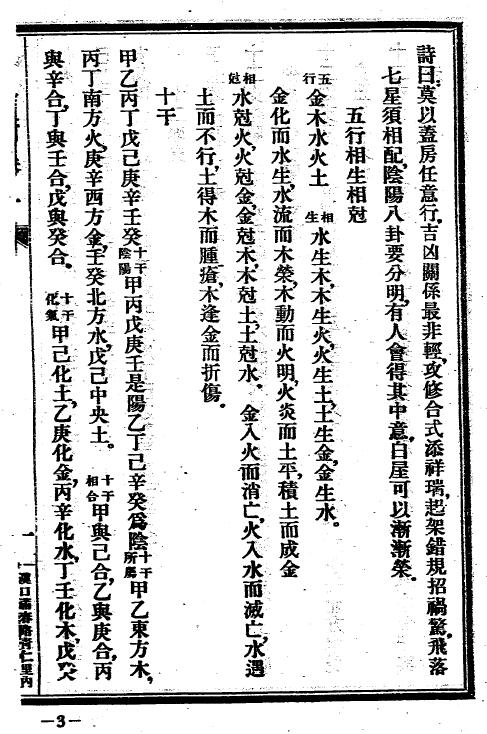 詩曰，莫以蓋房任意行，吉凶關係最非輕，攻修合式添祥瑞，起架錯規招禍驚，飛落
七星須相配，陰陽八卦要分明，有人會得其中意，白屋可以漸漸榮。
五行相生相尅
五行 金木水火土 相生 水生木，木生火，火生土，土生金，金生水。
金化而水生，水流而木榮，木動而火明，火炎而土平，積土而成金
相尅 水尅火，火尅金，金尅木，木尅土，土尅水。 金入火而消亡，火入水而滅亡，水遇
土而不行，土得木而腫瘡，木逢金而折傷。
十干
甲乙丙丁戊己庚辛壬癸 十干陰陽 甲丙戊庚壬是陽，乙丁己辛癸爲陰， 十干所屬 甲乙東方木，
丙丁南方火，庚辛西方金，壬癸北方水，戊己中央土。 十干相合 甲與己合，乙與庚合，丙
與辛合，丁與壬合，戊與癸合。 十干化氣 甲己化土，乙庚化金，丙辛化水，丁壬化木，戊癸
一
仁里內
—3—